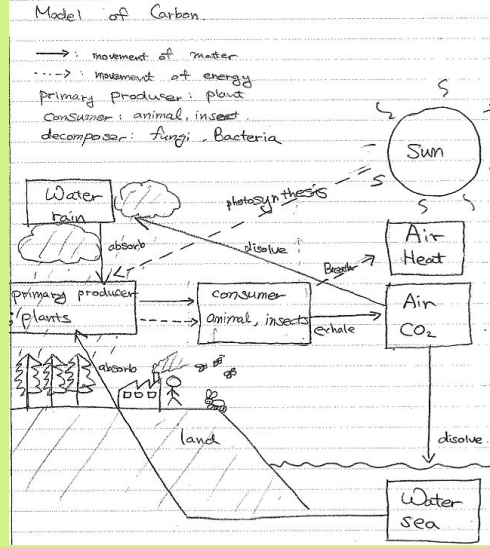 Model of Carbon.
→: movement of matter
---->: movement of energy
primary producer: plant
consumer: animal, insect.
decomposer: fungi, Bacteria
Sun
Water
rain
photosynthesis
absorb
disolve
Air
Heat
Breath
primary producer
plants
consumer
animal, insects
exhale
Air
CO₂
absorb
land
disolve
Water
sea